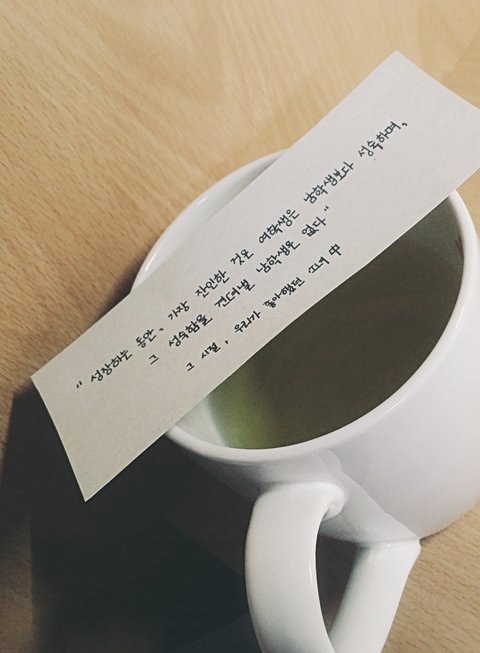 " 성장하는 동안, 가장 잔인한 것은 여학생은 남학생보다 성숙하며,
그 성숙함을 견뎌낼 남학생은 없다 "
그 시절, 우리가 좋아했던 소녀 中